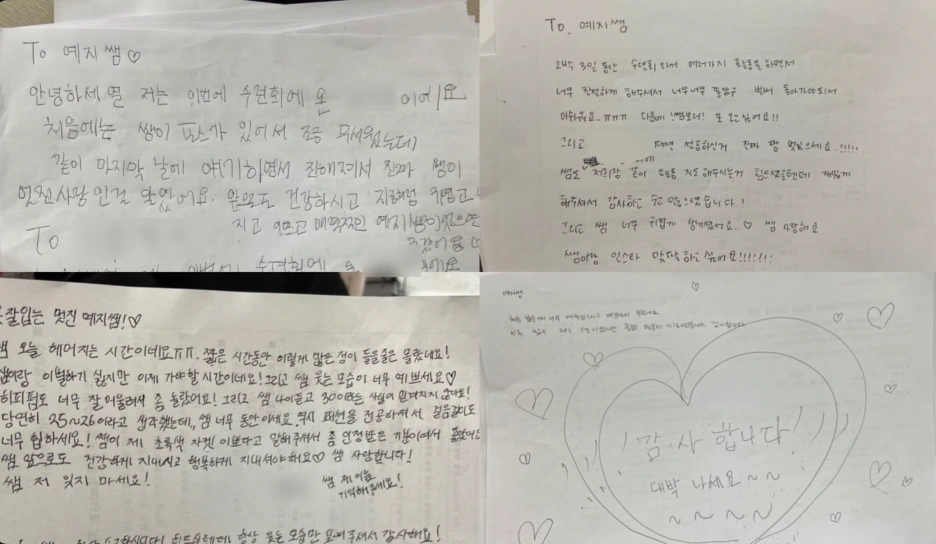 To 예지쌤♡
안녕하세열 저는 이번에 수련회에 온 이에요
처음에는 쌤이 포스가 있어서 조금 무서웠는데
같이 마지막 날에 얘기하면서 친해져서 진짜 쌤이
멋진사람 인걸 알았어요. 앞으로도 건강하시고 지금처럼 귀엽고
지고 이쁘고 매력적인 예지쌤이
To
수련회에
To. 예지쌤
2박 3일 동안 수련회 와서 여러가지 활동을 하면서
너무 친절하게 해주셔서 너무너무 좋았구 벌써 돌아가야돼서
아쉬워요..ㅠㅠㅠ 다음에 또 보고싶어요!!
그리고 패션 전공하신거 진짜 짱 멋있으세요!!!!!
쌤도 저희랑 같이 활동 지도해주시는거 힘드셨을텐데
해주셔서 감사하고 수고 많으셨습니다!
그리고 쌤 너무 귀엽게 생기셨어요..♡ 쌤 사랑해요
쌤이랑 인스타 맞팔하고 싶어요!!!!!!!
잘입는 멋진 예지쌤!♡
오늘 헤어지는 시간이네요ㅠㅠ. 짧은 시간동안 이렇게 많은 정이 들을줄은 몰랐네요!
이별하기 싫지만 이제 가야할 시간이네요! 그리고 쌤 웃는 모습이 너무 예쁘세요♡
히피펌도 너무 잘 어울려서 좀 놀랐어요! 그리고 쌤 나이듣고 30이라는 사실이 믿겨지지 않아요!
당연히 25~26이라고 생각했는데.. 쌤 너무 동안이세요. 역시 패션을 전공하셔서
너무 힙하세요! 쌤이 제 초록색 자켓 이쁘다고 말해주셔서 좀 인정받은 기분이여서 좋았어요
쌤 앞으로도 건강하게 지내시고 행복하게 지내셔야해요♡ 쌤 사랑합니다!
쌤 저 잊지 마세요!
쌤 제 이름
기억해주세요!
항상 웃는 모습만 보여주셔서 감사해요!
예지쌤
감사합니다!
대박 나세요~~
~~~~